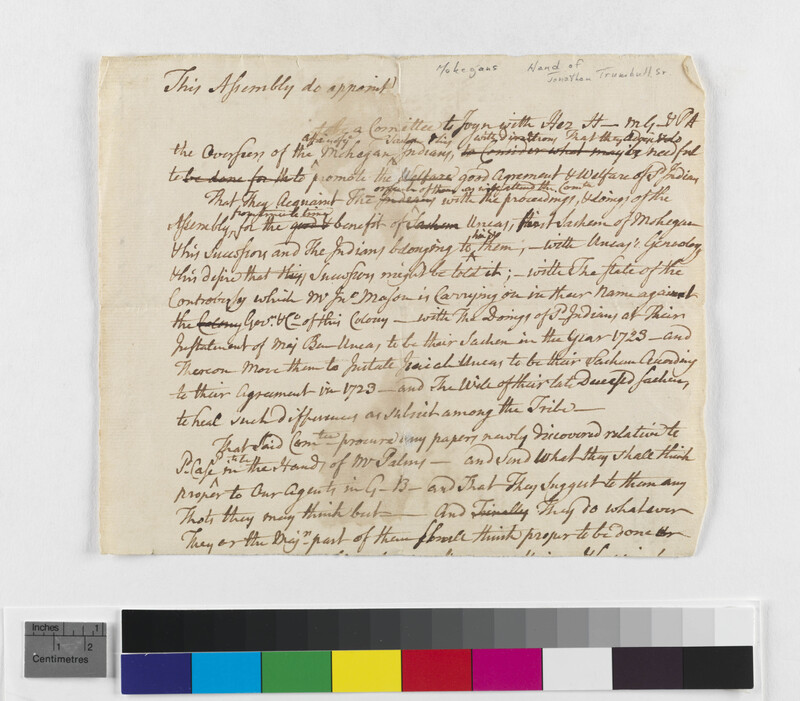 Mohegans Hand of
Jonathan Trumbull, Sr
This Assembly do appoint
a Comittee to Joyn with Hez H— m G— & P A
the Overseers of the Mohegan Indians, with direction That they to Consider what may be needful
to be done for the to promote the Welfare good Agreement & Welfare of sd Indians
as will attend the Comtee
That They Acquaint The Indians with the proceedings, & doings of the
from time to time
Assembly, for the good benefit of Sachem Uncas, first Sachem of Mohegan
& his Successors and The Indians belonging to them; — with Uncas's Geneology
& his desire that his Successors might be told it; — with The State of the
Controversy which Mr Jno Mason is Carrying on in their Name against
the Colony Govr & Co of this Colony — with The Doings of sd Indians at Their
Instatement of Maj Ben Uncas to be their Sachem in the Year 1723 — and
Thereon Move them to Instate Isaiah Uncas to be their Sachem Acording
to their Agreement in 1723 — and The Will of their late Decesd Sachem,
to heal such differences as subsist among the Tribe —
That Said Comtee procure any papers newly discovered relative to
sd Case in the Hands of Mr Palms — and send What they shall think
proper to Our Agents in G—B— and That They Suggest to them any
Thots they may think best — And Finally They do whatever
They or the Majr part of them shall think proper to be done or